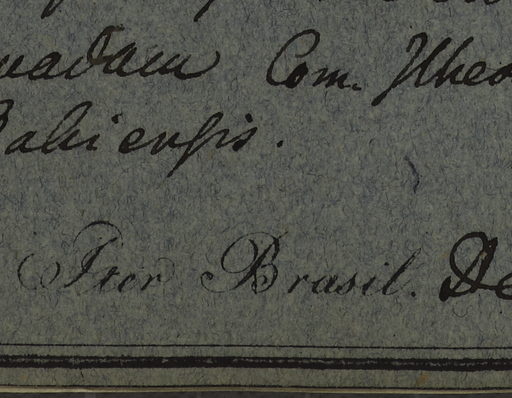 uadam Com. Ilheo
Bahiensis.
Iter Brasil. De